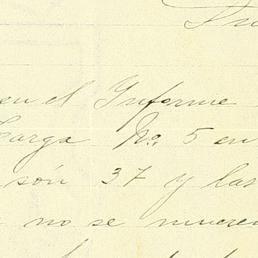 en el Informe
Carga No. 5 en
són 37 y las
no se mueren